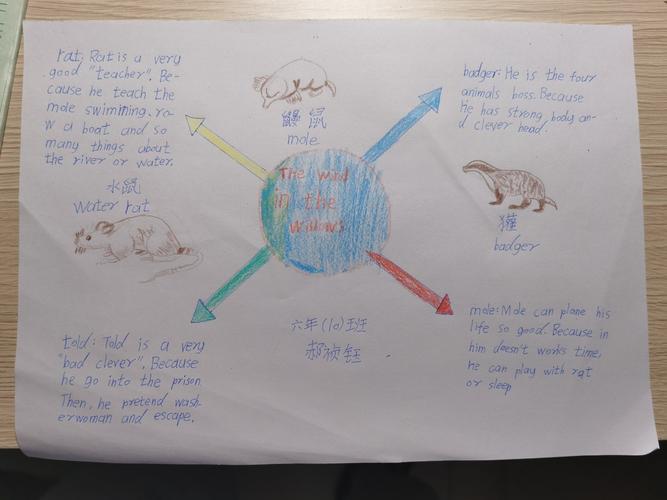 rat: Rat is a very
good "teacher". Be-
cause he teach the
mole swimming. ro-
w a boat and so
many things about
the river or water.
水鼠
Water rat
鼹鼠
mole
The wind
in the
willows
badger: He is the four
animals boss. Because
He has strong body an-
d clever head.
獾
badger
told: Told is a very
"bad clever". Because
he go into the prison
Then, he pretend wash-
erwoman and escape.
六年(10)班
mole: Mole can plane his
life so good. Because in
him doesn't works time,
he can play with rat
or sleep